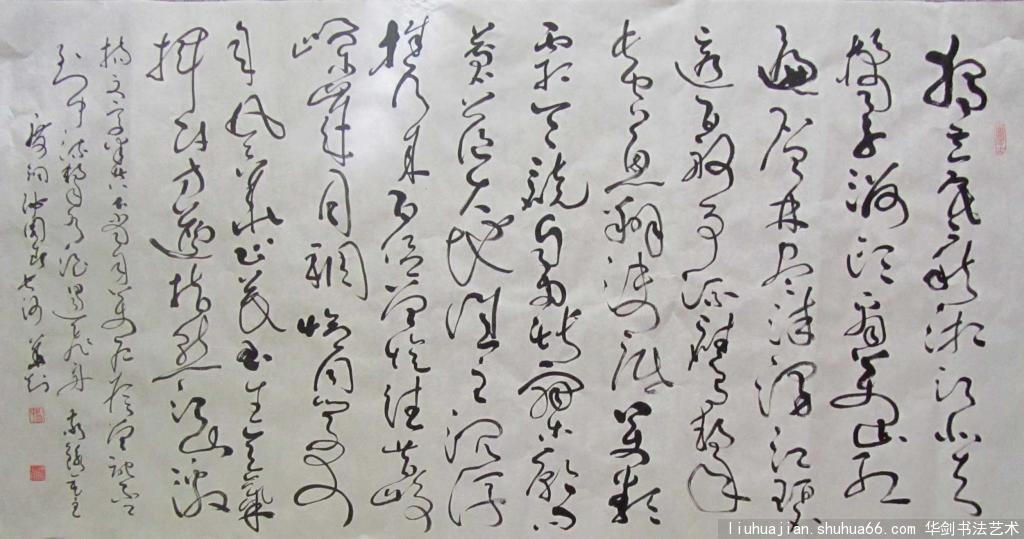 独立寒秋湘江北去
橘子洲头看万山红
遍层林尽染漫江碧
透百舸争流鹰击
长空鱼翔浅底万类
霜天竞自由怅寥廓问
苍茫大地谁主沉浮
携来百侣曾游忆往昔峥
嵘岁月稠恰同学少
年风华正茂书生意气
挥斥方遒指点江山激
扬文字粪土当年万户侯曾记否
到中流击水浪遏飞舟
词沁园春长沙 华剑
liuhuajian.shuhua66.com 华剑书法艺术